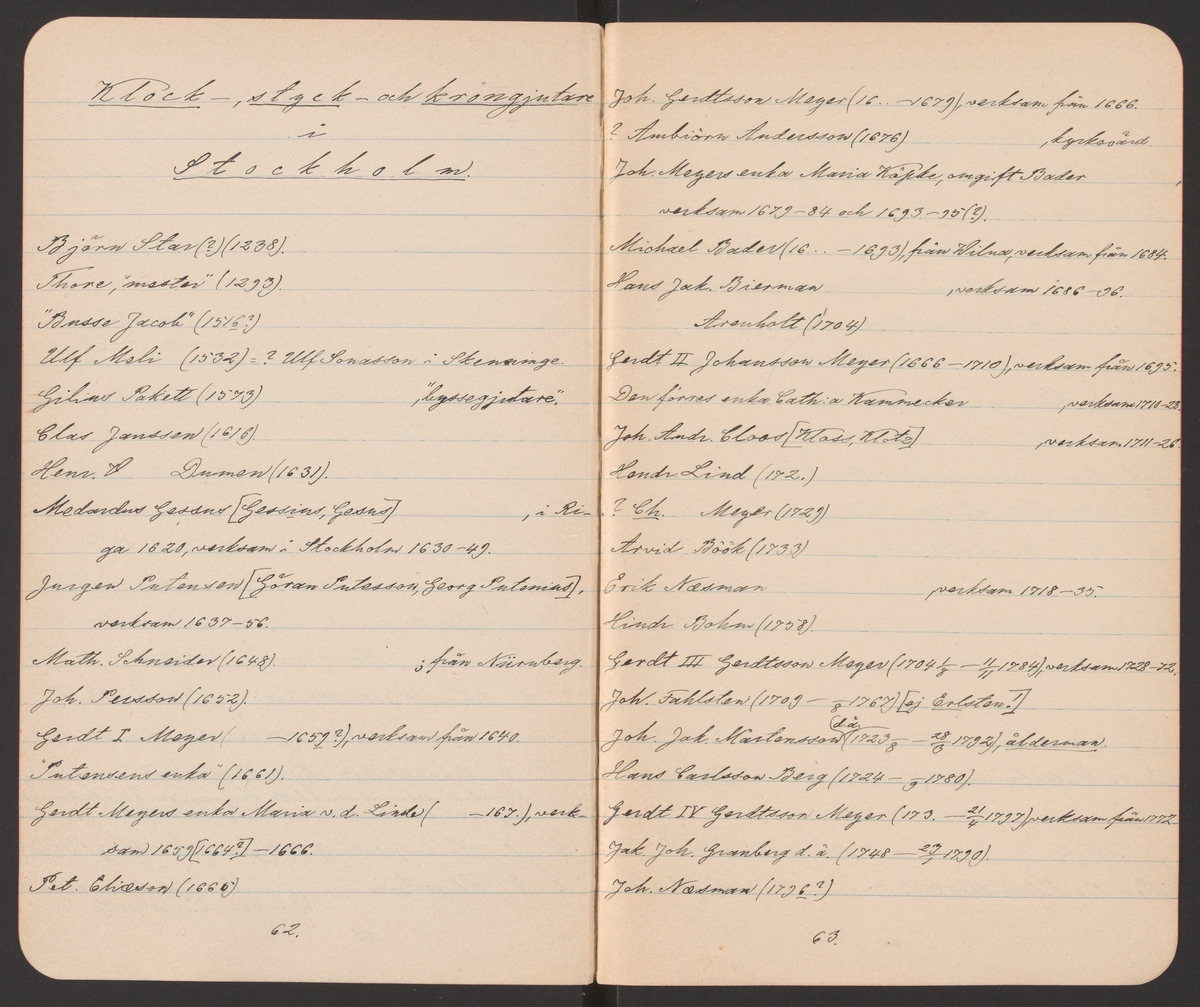 Klock-, styck- och krongjutare
i
Stockholm.
Björn Star(?)(1238).
Thore, "mester" (1293).
"Busse Jacob" (1516?)
Ulf Meli (1532) = ? Ulf Sonasson i Skenninge.
Gilius Pakett (1573) "byssegjutare".
Clas Janssen (1616).
Henr. Dumen (1631).
Medardus Gessus [Gessius, Gesus] , i Ri-
ga 1620, verksam i Stockholm 1630-49.
Jurgen Putensen [Göran Putesson, Georg Putenius],
verksam 1637-56.
Math. Schneider (1648). ; från Nürnberg.
Joh. Persson (1652).
Gerdt I Meyer ( -1659?), verksam från 1640.
"Putensens enka" (1661).
Gerdt Meyers enka Maria v. d. Linde ( -167.), verk-
sam 1659[1664?]-1666.
Pet. Eliæson (1665)
62.
Joh. Gerdtsson Meyer (16.. -1679), verksam från 1666.
? Ambiörn Andersson (1676) , kyrkvärd
Joh. Meyers enka Maria Köpke, omgift Bader
verksam 1679-84 och 1693-95(?).
Michael Bader (16... -1693), från Wilna, verksam från 1684.
Hans Jak. Bierman , verksam 1686-96.
Arenholt (1704)
Gerdt II Johansson Meyer (1666-1710), verksam från 1695.
Den förres enka Cath:a Kammecker , verksam 1710-28.
Joh. Andr. Cloos [Kloss, Klotz] , verksam 1711-26.
Hendr. Lind (172.)
? Ch. Meyer (1729)
Arvid Böök (1733)
Erik Næsman , verksam 1718-35.
Hindr. Bohm (1758).
Gerdt III Gerdtsson Meyer (1704 1/8 - 11/11 1784), verksam 1728-72.
Joh. Fahlsten (1709 - /8 1767) [ej Erlsten!]
Joh. Jak. Mårtensson d.ä. (1723 /8 - 28/8 1792), ålderman.
Hans Carlsson Berg (1724 - /9 1780).
Gerdt IV Gerdtsson Meyer (173. - 21/4 1797) verksam från 1772
Jak. Joh. Granberg d. ä. (1748 - 29/1 1790).
Joh. Næsman (1796?)
63.